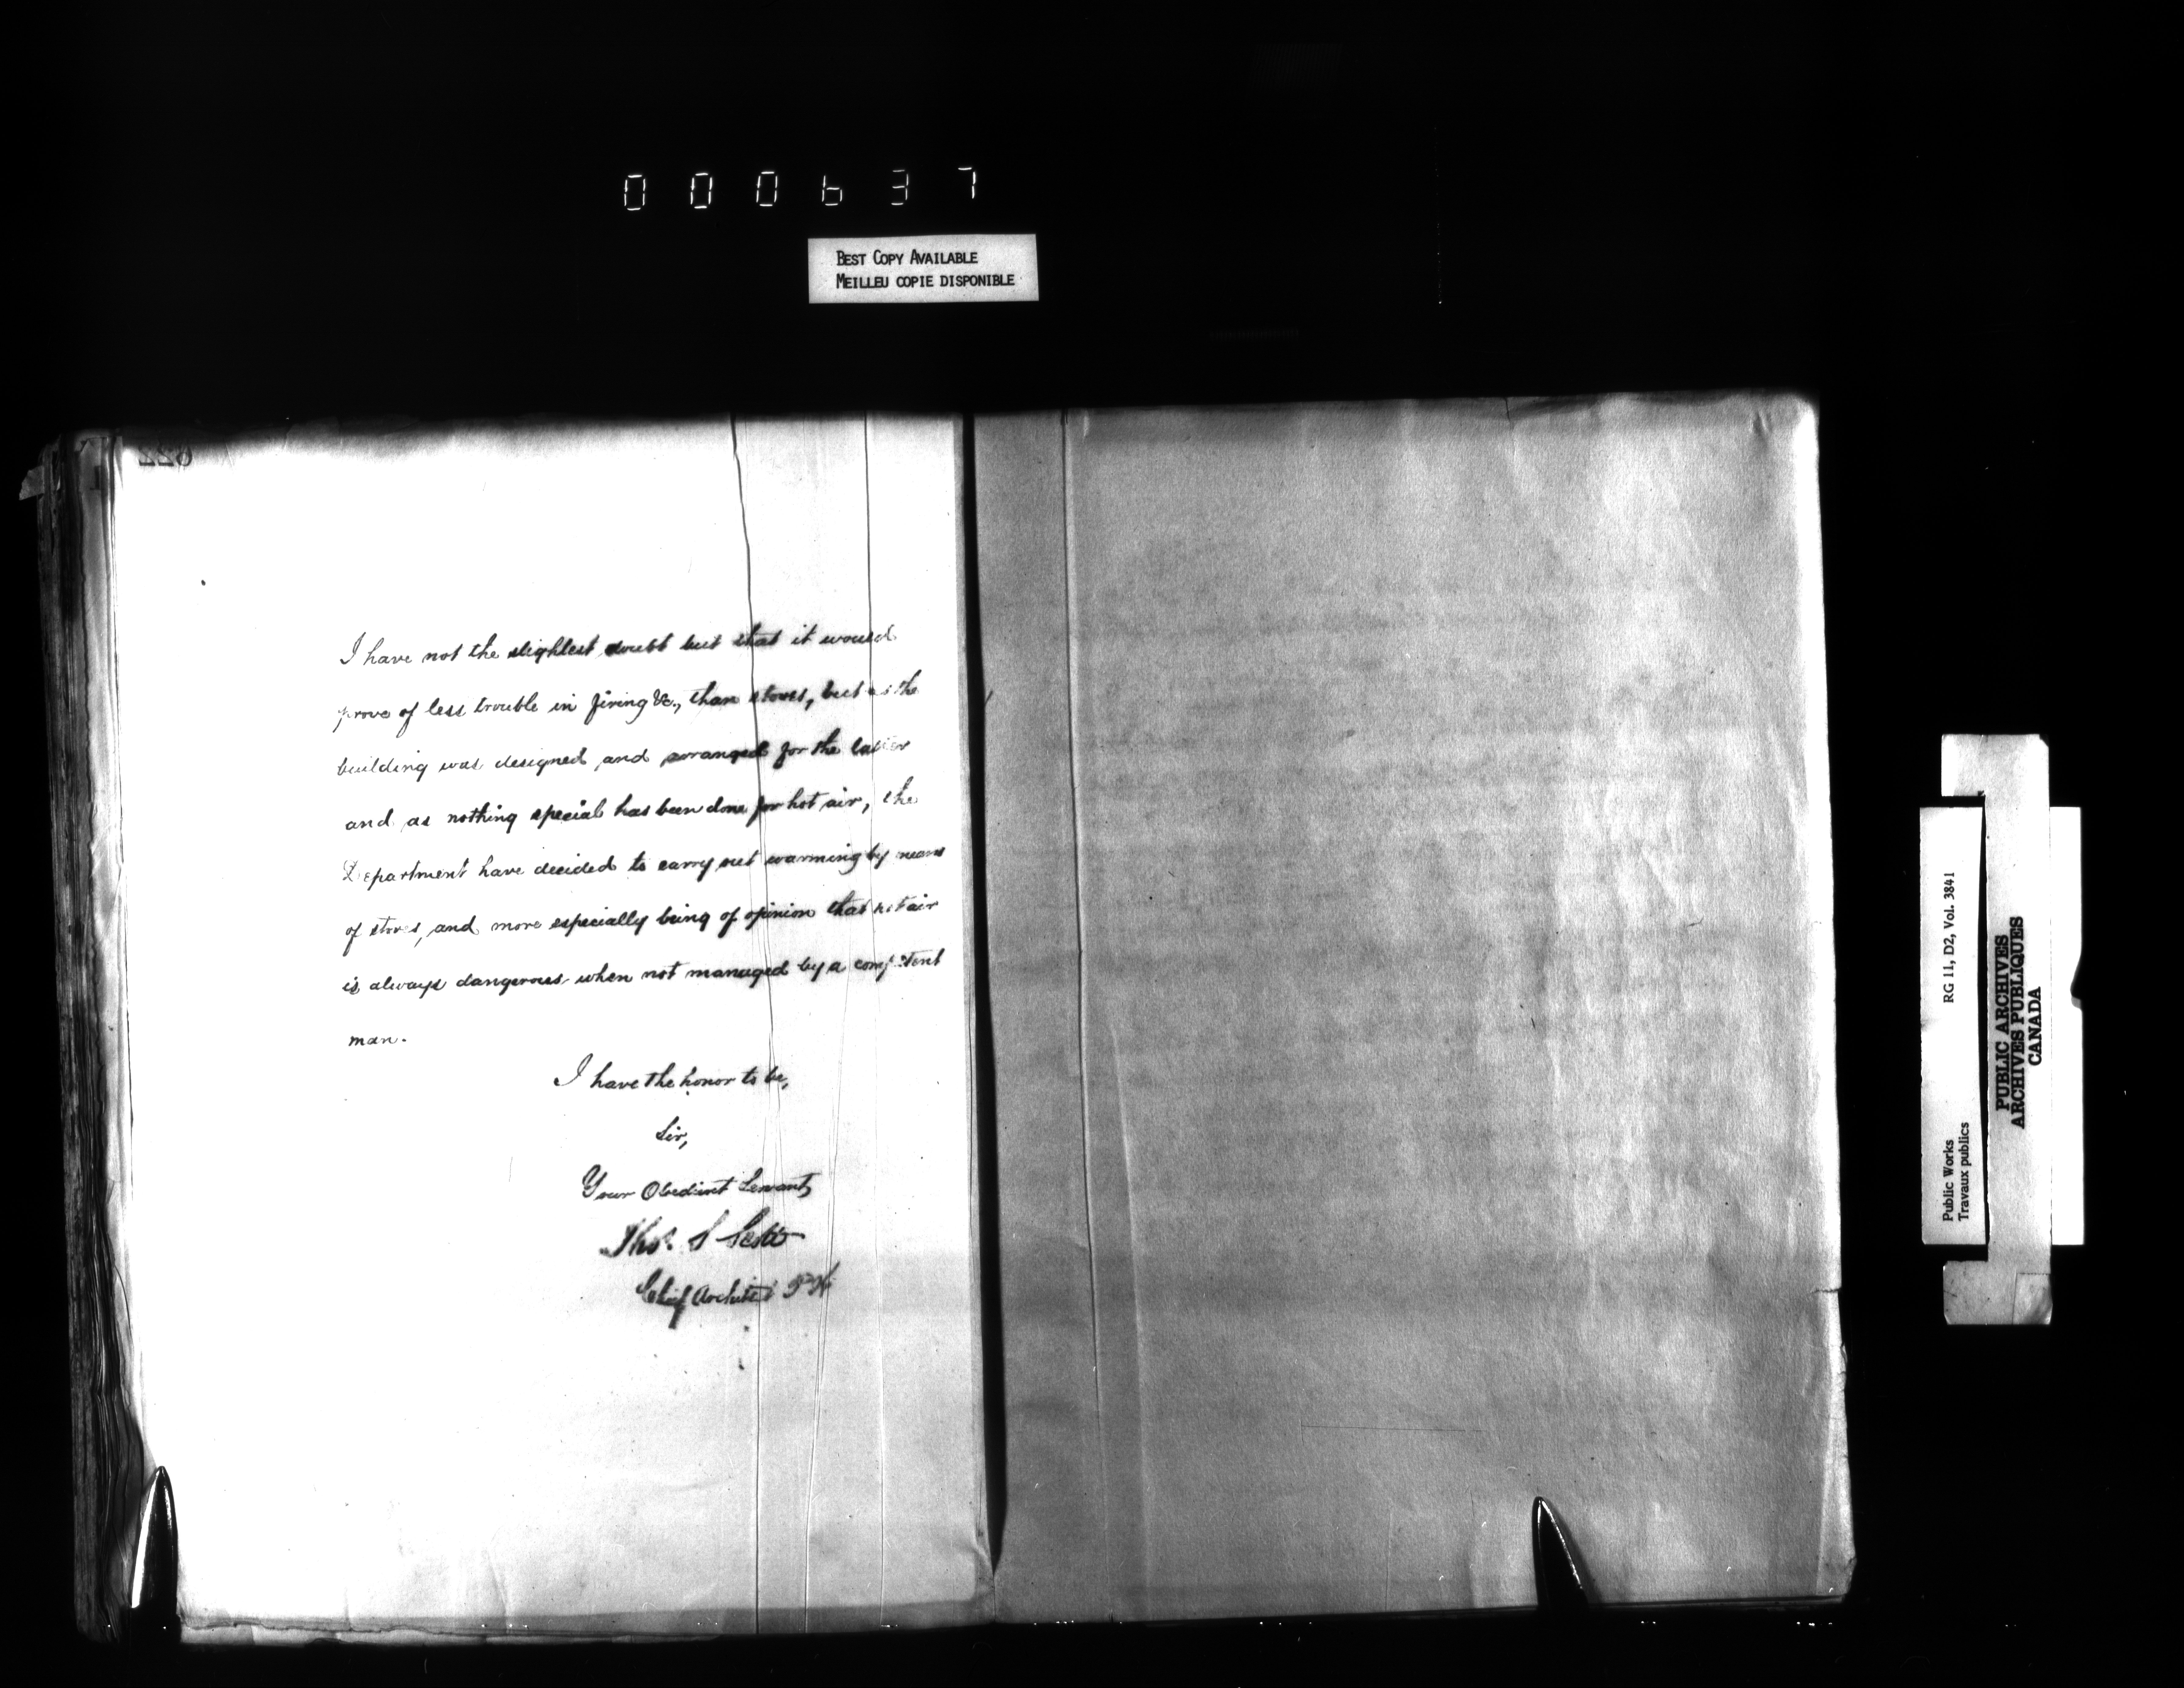 000637
BEST COPY AVAILABLE
MEILLEU COPIE DISPONIBLE
622
I have not the slightest doubt but that it would
prove of less trouble in firing &c., than stoves, but as the
building was designed and arranged for the latter
and as nothing special has been done for hot air, the
Department have decided to carry out warming by means
of stoves, and more especially being of opinion that hot air
is always dangerous when not managed by a competent
man.
I have the honor to be,
Sir,
Your Obedient Servant,
Thos. S Scott
Chief Architect P.W
Public Works RG 11, D2, Vol. 3841
Travaux publics
PUBLIC ARCHIVES
ARCHIVES PUBLIQUES
CANADA